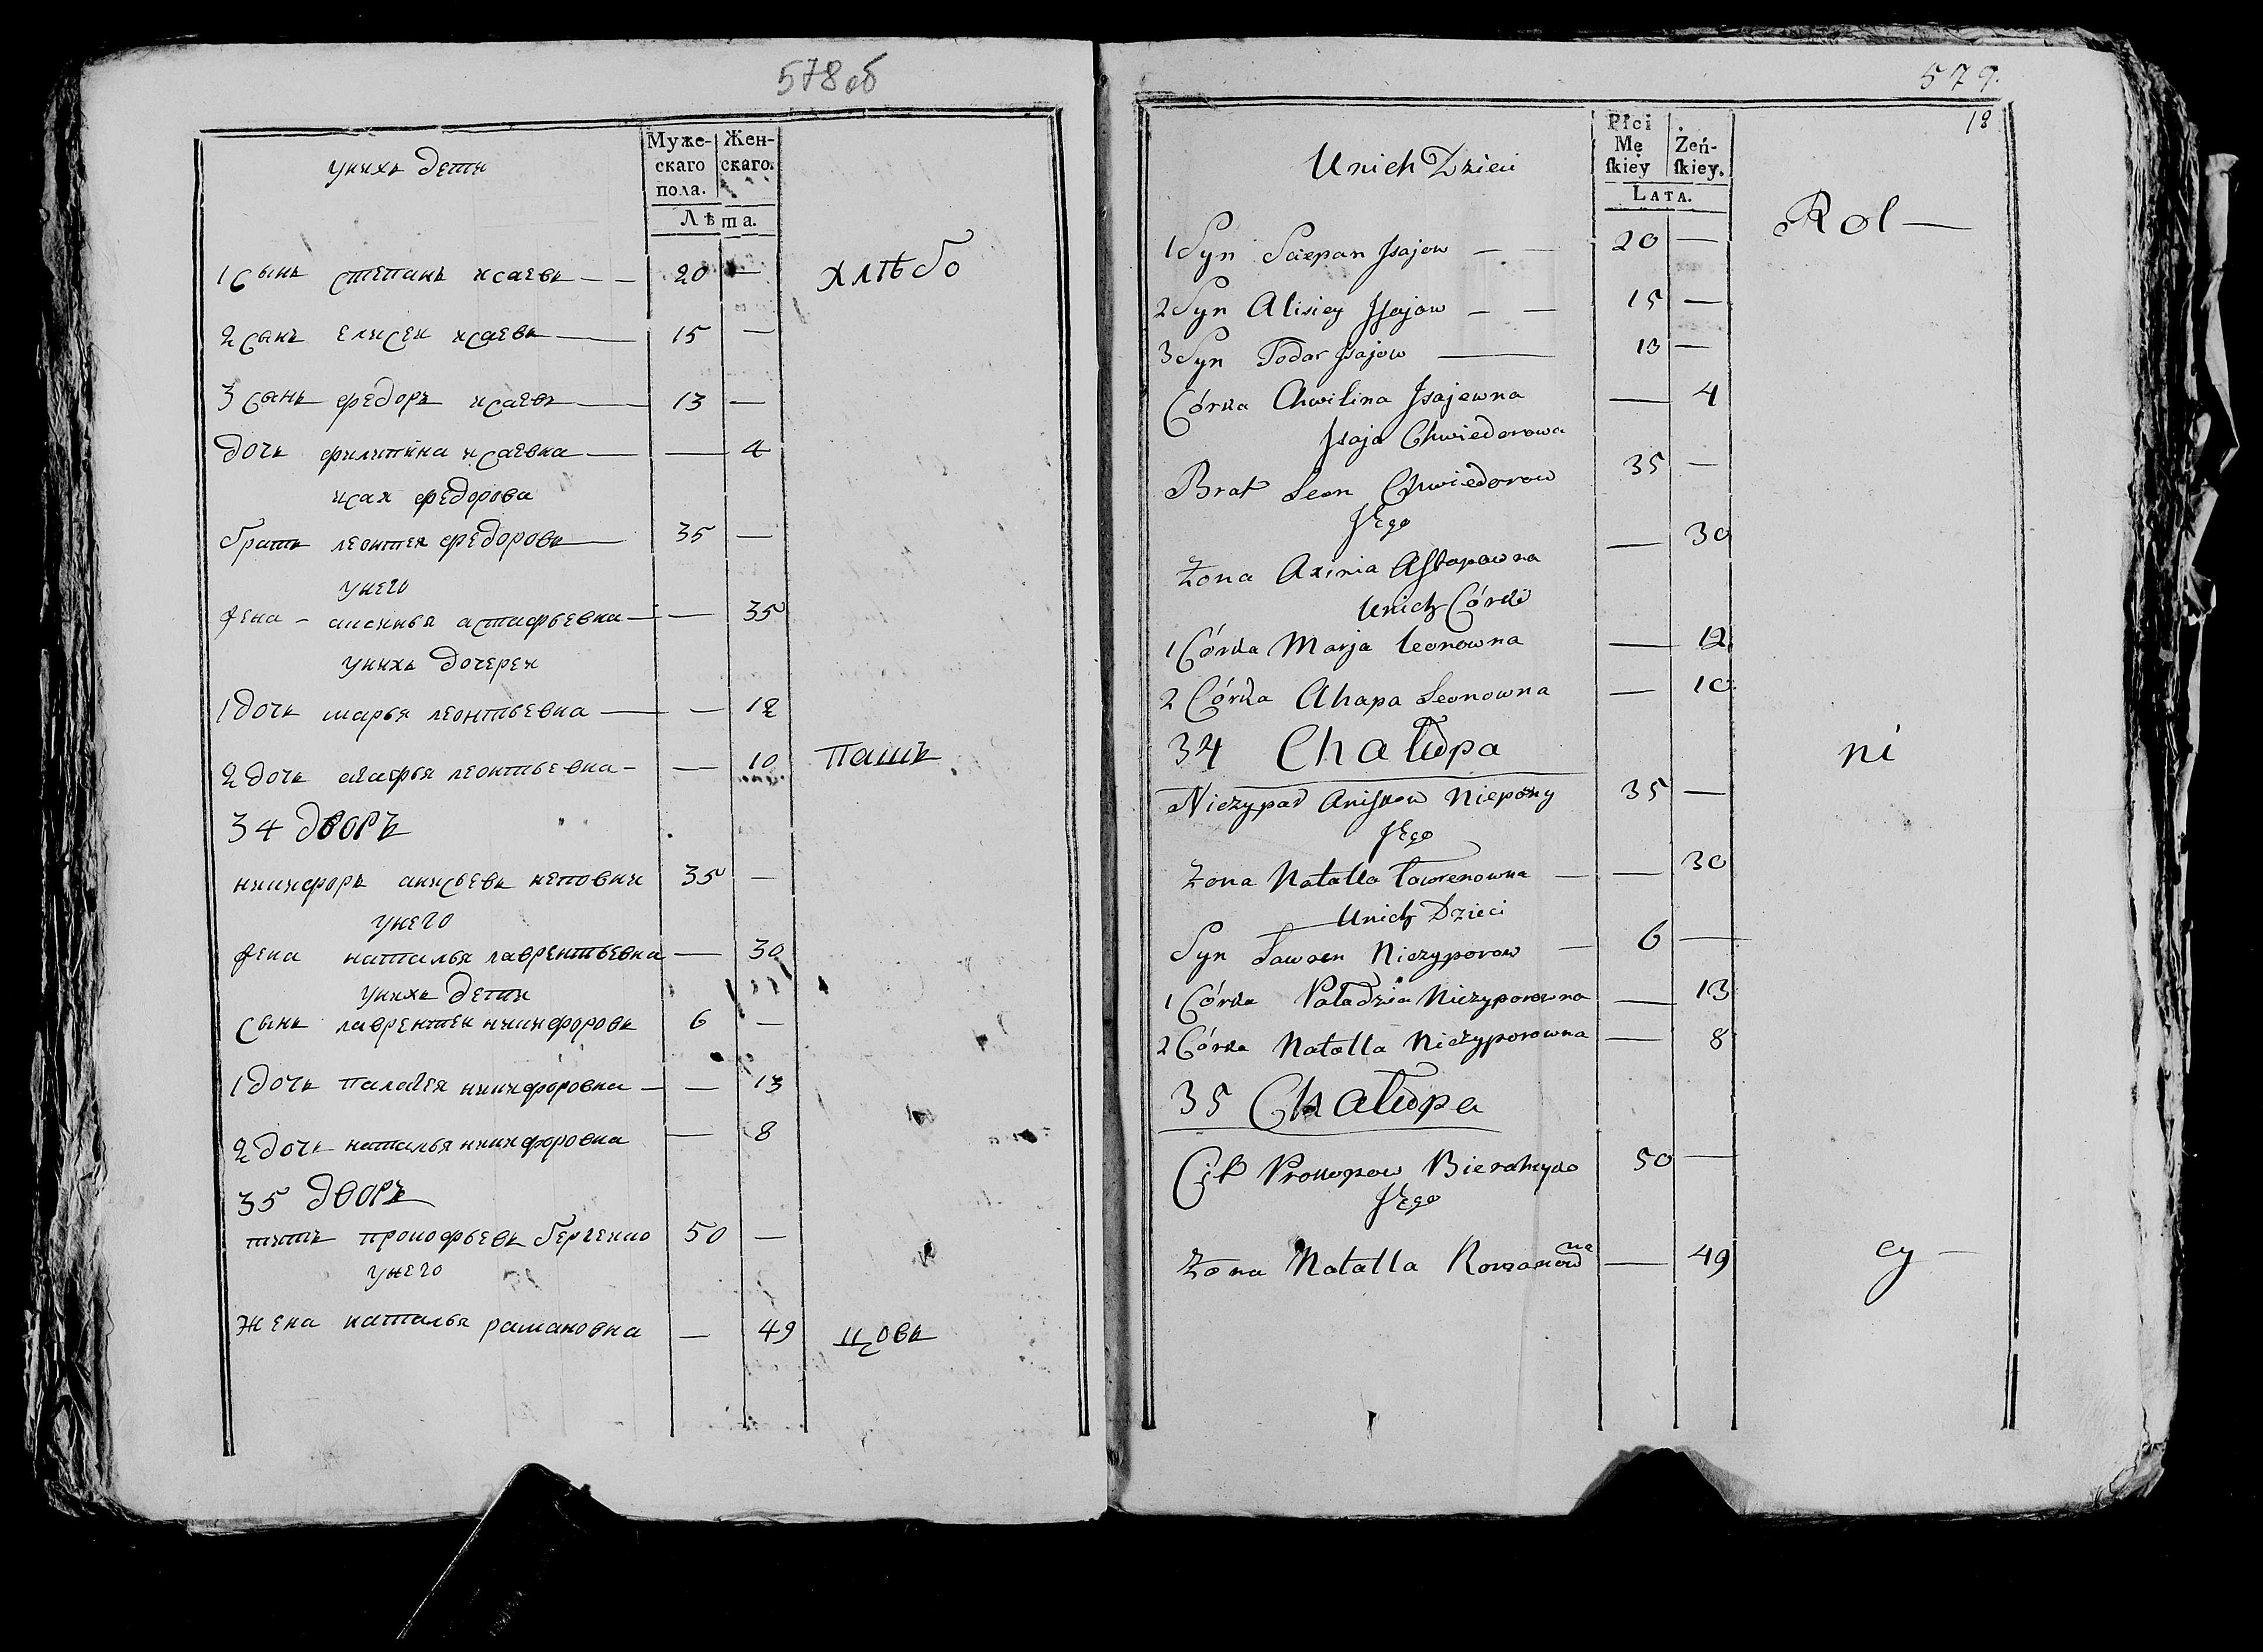 578 об
Муже- Жен-
скаго скаго.
пола.
Лѣта.
унихъ дети
1 сынъ степанъ исаевъ — — 20 —
хлѣбо
2 сынъ елисеи исаевъ — 15 —
3 сынъ федоръ исаевъ — 13 —
дочь филитина исаевна — — 4
исая федорова
братъ леонтеи федоровъ — 35 —
унего
жена - аксинья астафьевна — — 35
унихъ дочереи
1 дочь марья леонтьевна — — 12
2 дочь агафья леонтьевна - — 10
пашъ
34 дворъ
никифоръ анисьевъ 35 —
унего
жена наталья лаврентьевна — 30
унихъ дети
сынъ лаврентеи никифоровъ 6 —
1 дочь палагея никифоровна — — 13
2 дочь наталья никифоровна — 8
35 дворъ
титъ прокофьевъ 50 —
унего
жена наталья рамановна — 49
цовъ
579.
18
Płci
Mę Żeń-
ſkiey ſkiey.
LATA.
Unich Dzieci
Rol —
1 Syn Sciepan Jsajow — — 20 —
2 Syn Alisiey Jsajow — — 15 —
3 Syn Todor Jsajow — 13 —
Córka Chwilina Jsajewna — 4
Jsaja Chwiedorowa
Brat Leon Chwiedorow 35 —
Jego
Żona Axinia Astapowna — 30
Unich Córki
1 Córka Marja Leonowna — 12
2 Córka Ahapa Leonowna — 10
34 Chałupa
ni
Niczypar Aniskow 35 —
Jego
Żona Natalla Ławrenowna — — 30
Unich Dzieci
Syn Ławren Niczyporow — 6 —
1 Córka Paładzia Niczyporowna — 13
2 Córka Natalla Niczyporowna — 8
35 Chałupa
Cit Prokopow 50 —
Jego
Żona Natalla Romanowna — 49
cy —